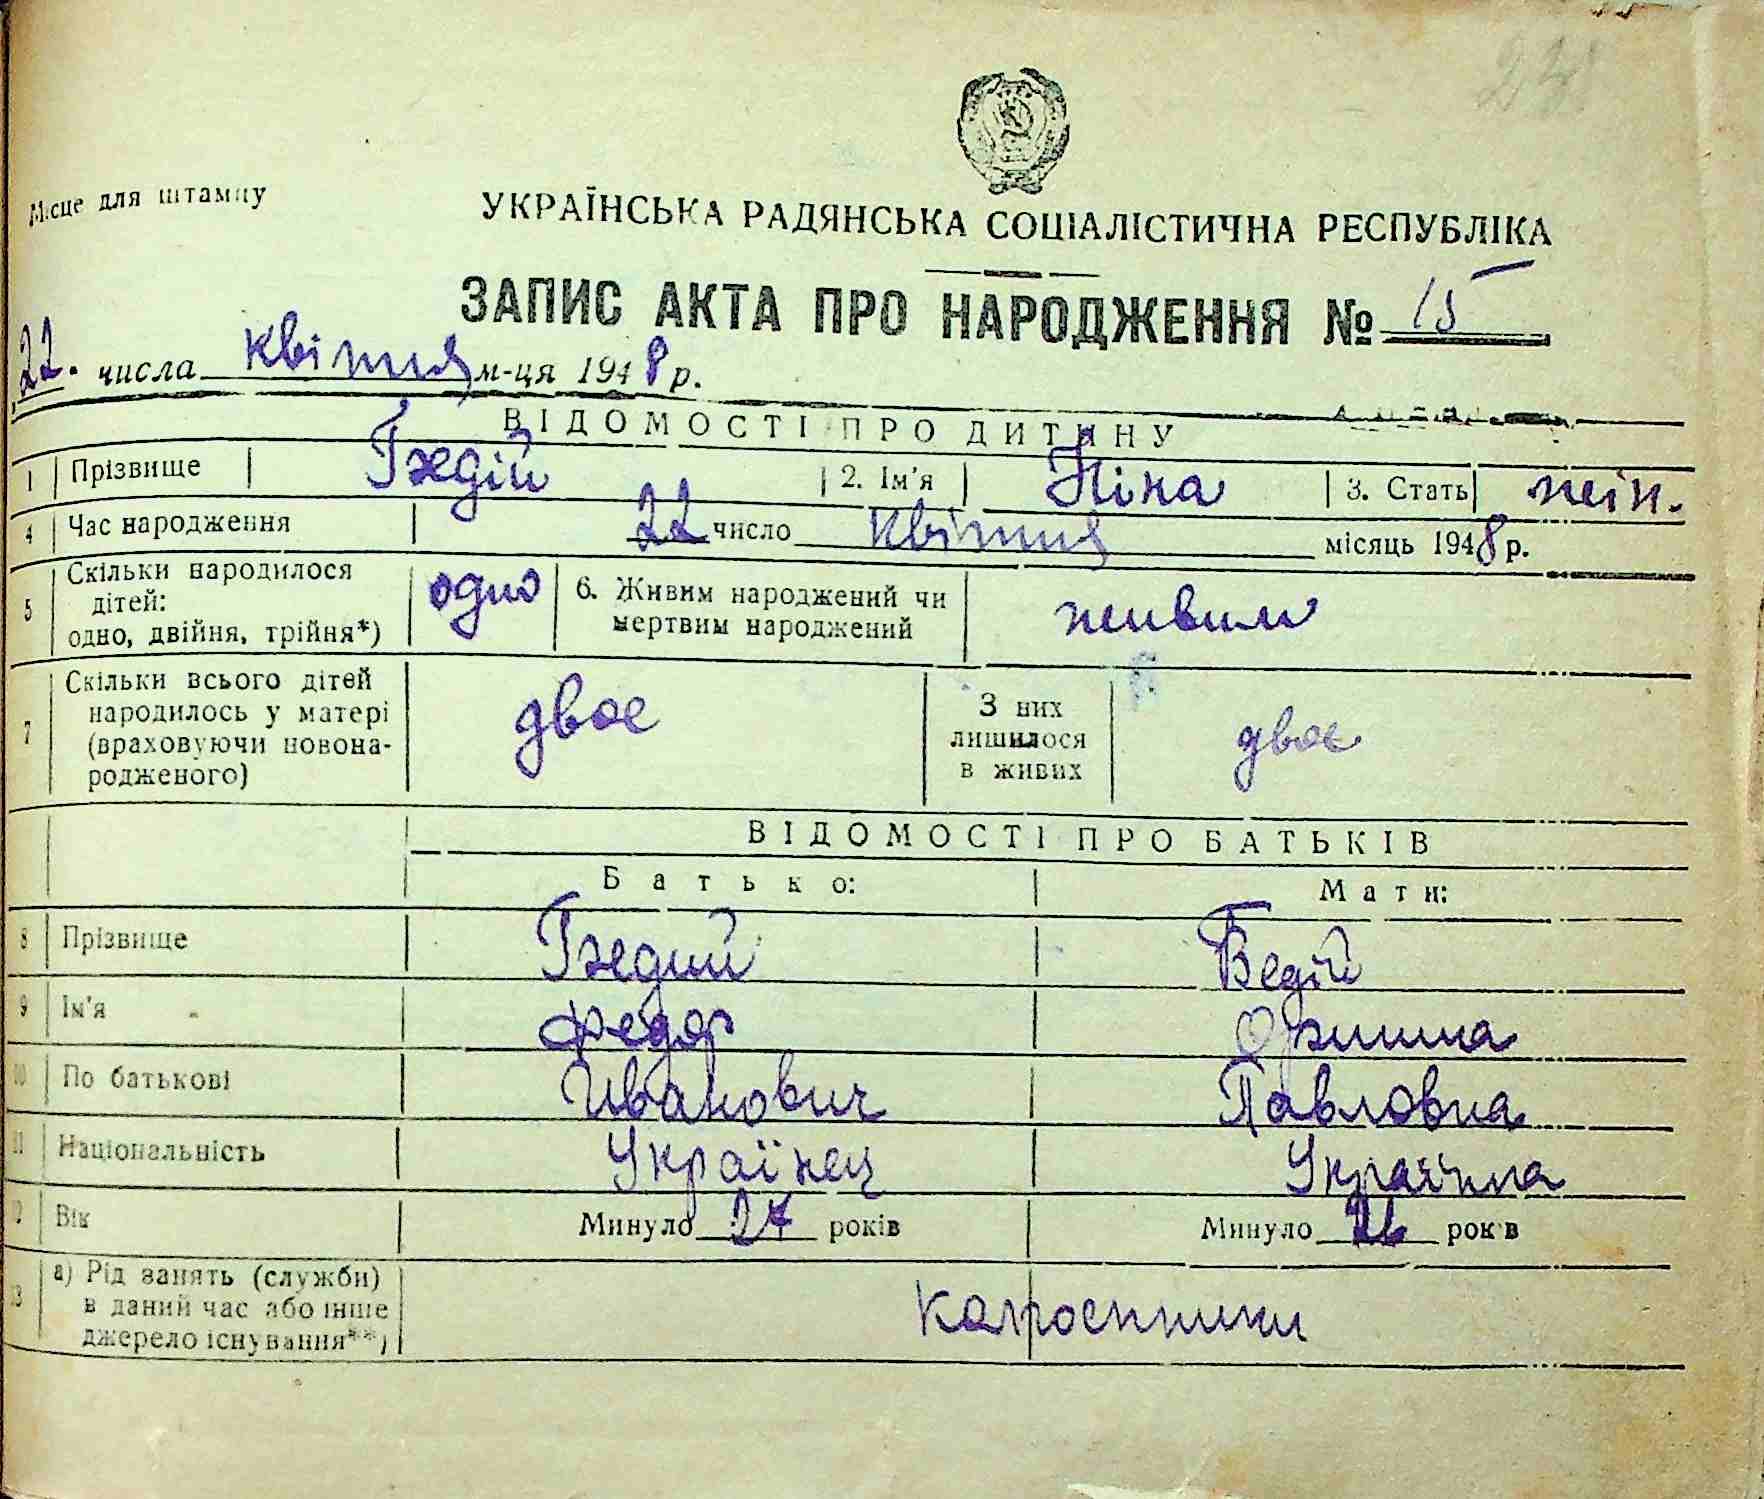 231
Місце для штампу
УКРАЇНСЬКА РАДЯНСЬКА СОЦІАЛІСТИЧНА РЕСПУБЛІКА
ЗАПИС АКТА ПРО НАРОДЖЕННЯ № 15
22. числа квітня м-ця 1948 р.
ВІДОМОСТІ ПРО ДИТИНУ
1 Прізвище Гжедій 2. Ім'я Ніна 3. Стать жін.
4 Час народження 22 число квітня місяць 1948 р.
5 Скільки народилося дітей: одно, двійня, трійня*) одно 6. Живим народжений чи мертвим народжений живим
7 Скільки всього дітей народилось у матері (враховуючи новонародженого) двоє З них лишилося в живих двоє
ВІДОМОСТІ ПРО БАТЬКІВ
Батько: Мати:
8 Прізвище Гжедий Бедій
9 Ім'я Федор Оришка
10 По батькові Иванович Павловна
11 Національність Українец Українка
12 Вік Минуло 27 років Минуло 26 років
13 а) Рід занять (служби) в даний час або інше джерело існування**)